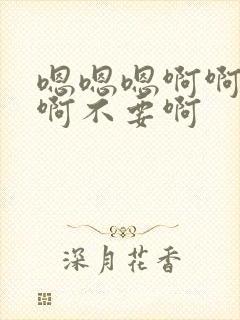 嗯嗯嗯啊啊
啊不要啊
深月花香